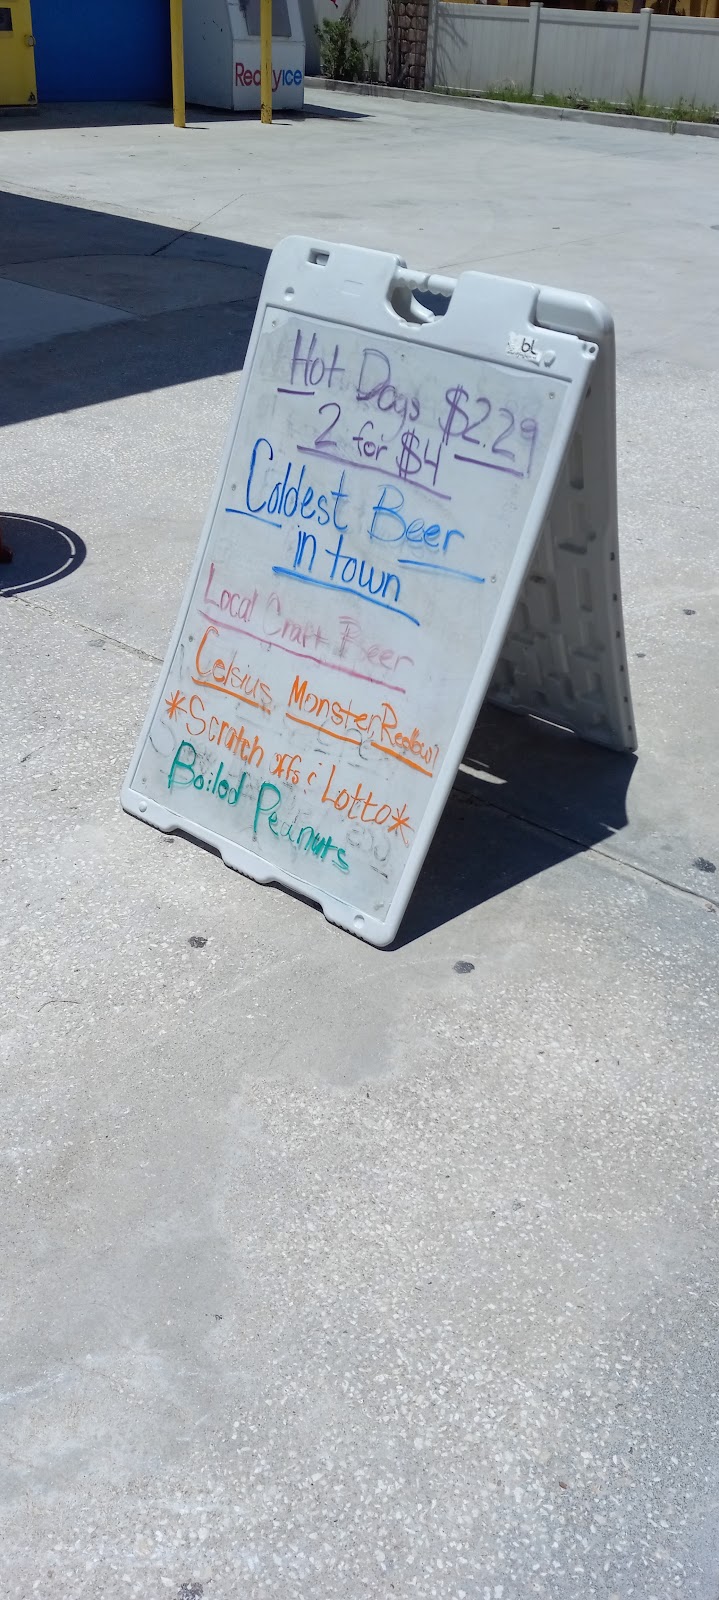 ReadyIce
bL
Hot Dogs $2.29
2 for $4
Coldest Beer
in town
Local Craft Beer
Celsius Monster, Redbull
*Scratch offs & Lotto*
Boiled Peanuts